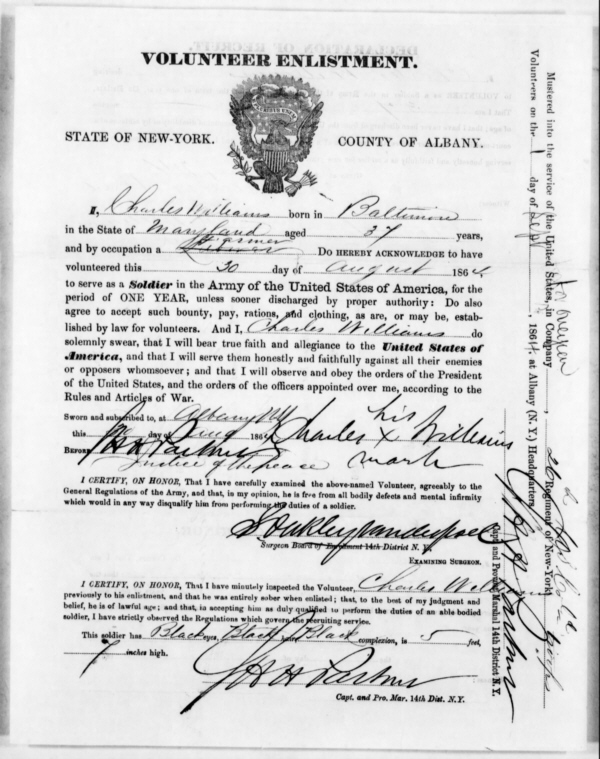 VOLUNTEER ENLISTMENT.
STATE OF NEW-YORK. COUNTY OF ALBANY.
I, Charles Williams born in Baltimore
in the State of Maryland aged 37 years,
and by occupation a Farmer DO HEREBY ACKNOWLEDGE to have
volunteered this 30 day of August 1864,
to serve as a Soldier in the Army of the United States of America, for the
period of ONE YEAR, unless sooner discharged by proper authority: Do also
agree to accept such bounty, pay, rations, and clothing, as are, or may be, estab-
lished by law for volunteers. And I, Charles Williams do
solemnly swear, that I will bear true faith and allegiance to the United States of
America, and that I will serve them honestly and faithfully against all their enemies
or opposers whomsoever; and that I will observe and obey the orders of the President
of the United States, and the orders of the officers appointed over me, according to the
Rules and Articles of War.
Sworn and subscribed to, at Albany NY
this 30 day of Aug 1864 Charles his X mark Williams
BEFORE H H Parkins
Justice of the peace
I CERTIFY, ON HONOR, That I have carefully examined the above-named Volunteer, agreeably to the
General Regulations of the Army, and that, in my opinion, he is free from all bodily defects and mental infirmity
which would in any way disqualify him from performing the duties of a soldier.
Surgeon Board of Enrollment 14th District N. Y.
EXAMINING SURGEON.
I CERTIFY, ON HONOR, That I have minutely inspected the Volunteer, Charles Williams
previously to his enlistment, and that he was entirely sober when enlisted; that, to the best of my judgment and
belief, he is of lawful age; and that, in accepting him as duly qualified to perform the duties of an able bodied
soldier, I have strictly observed the Regulations which govern the recruiting service.
This soldier has Black eyes, Black hair, Black complexion, is 5 feet,
7 inches high.
Capt. and Pro. Mar. 14th Dist. N.Y.
Mustered into the service of the United States, in Company , 26th Regiment of New-York
Volunteers on the 1 day of Sept , 1864, at Albany (N. Y.) Headquarters.
Capt. and Provost Marshal 14th District N.Y.